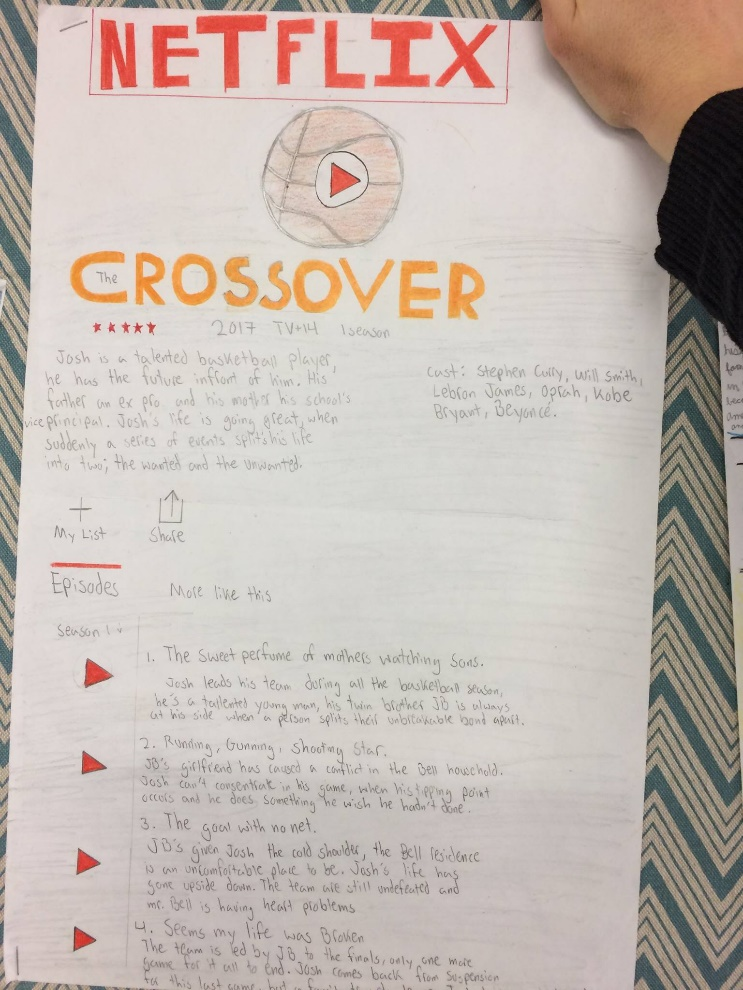 NETFLIX
The CROSSOVER
2017 TV+14 1season
Josh is a talented basketball player,
he has the future infront of him. His
father an ex pro and his mother his school's
vice principal. Josh's life is going great, when
suddenly a series of events splits his life
into two; the wanted and the unwanted.
Cast: Stephen Curry, Will Smith,
Lebron James, Oprah, Kobe
Bryant, Beyoncé.
My List
Share
Episodes
More like this
Season 1
1. The sweet perfume of mothers watching sons.
Josh leads his team during all the basketball season,
he's a tallented young man, his twin brother JB is always
at his side when a person splits their unbreakable bond apart.
2. Running, Gunning, Shooting Star.
JB's girlfriend has caused a conflict in the Bell household.
Josh can't consentrate in his game, when his tipping point
occurs and he does something he wish he hadn't done.
3. The goal with no net.
JB's given Josh the cold shoulder, the Bell residence
is an uncomfortable place to be. Josh's life has
gone upside down. The team are still undefeated and
mr. Bell is having heart problems
4. Seems my life was Broken
The team is led by JB to the finals, only one more
game for it all to end. Josh comes back from suspension
for this last game, but a family